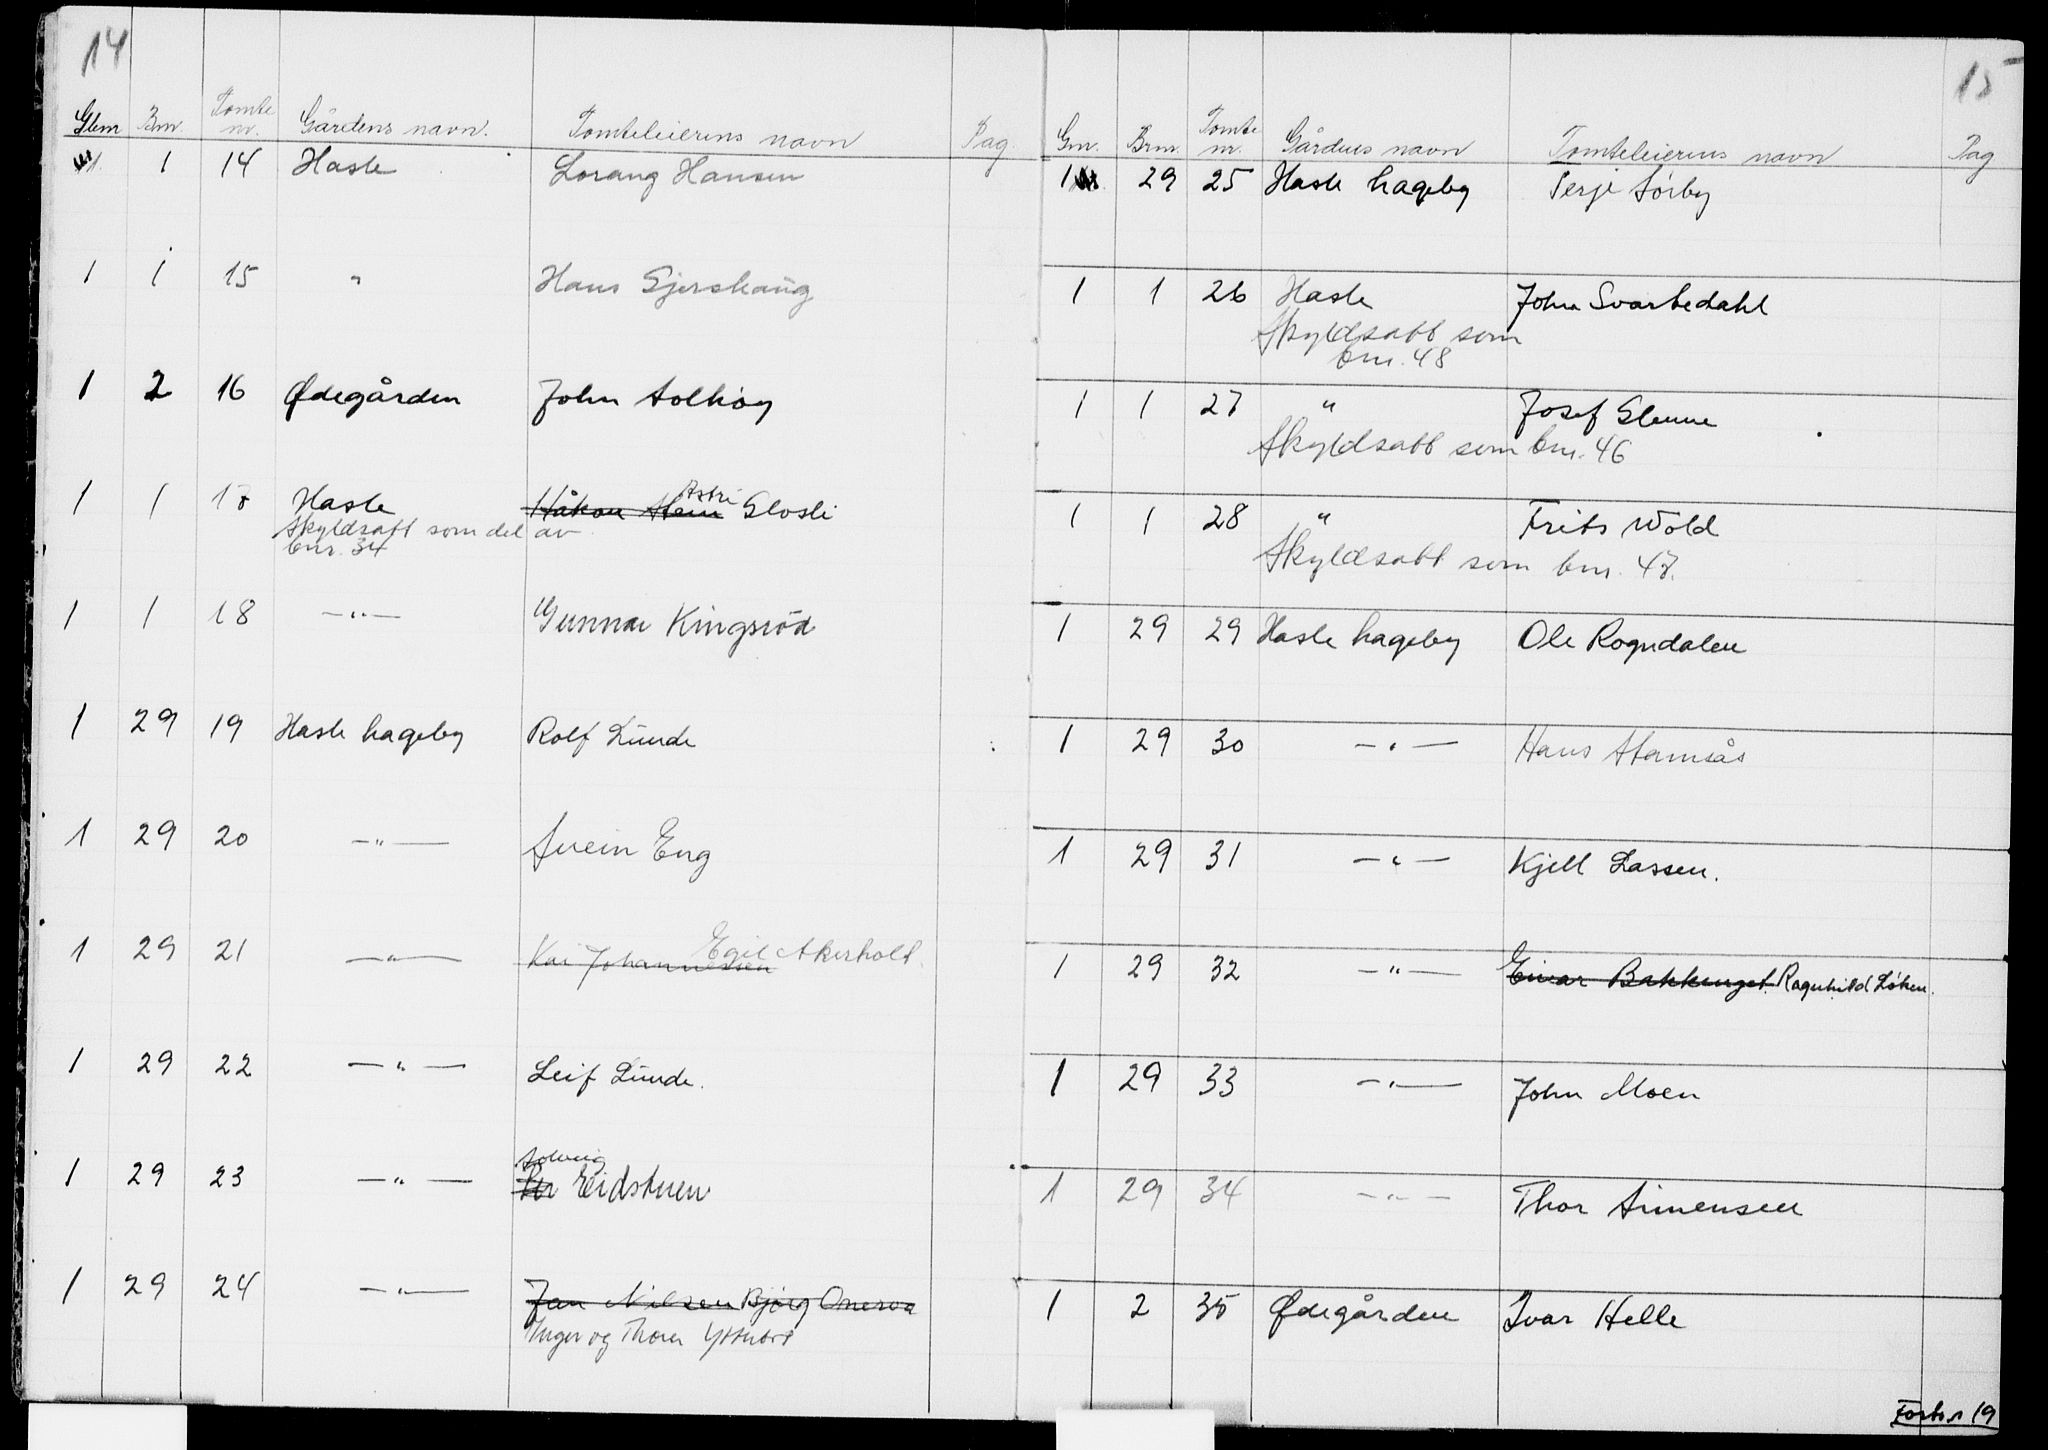 14
Gbnr Bnr. Tomte nr. Gårdens navn. Tomteleierens navn Pag.
1 1 14 Hasle Lorang Hansen
1 1 15 " Hans Gjershaug
1 2 16 Ødegården John Solhøy
1 1 17 Hasle Håkon Stein Astri Slosli
Skyldsatt som del av
bnr. 34
1 1 18 —"— Gunnar Kingsrød
1 29 19 Hasle hageby Rolf Lunde
1 29 20 —"— Svein Eng
1 29 21 —"— Kai Johannessen Egil Akerholt.
1 29 22 —"— Leif Lunde.
Solveig
1 29 23 —"— Per Eidstuen
1 29 24 —"— Jan Nilsen Bjørg
Inger og Thorer
15
Gnr. Brnr. Tomte nr. Gårdens navn Tomteleierens navn Pag
1 29 25 Hasle hageby Terje Sørby
1 1 26 Hasle John Svartedahl
Skyldsatt som
bnr. 48
1 1 27 " Josef Glenne
Skyldsatt som bnr. 46
1 1 28 " Frits Wold
Skyldsatt som bnr. 47.
1 29 29 Hasle hageby Ole Rogndalen
1 29 30 —"— Hans Stamsås
1 29 31 —"— Kjell Lassen.
1 29 32 —"— Einar Bakkenget. Ragnhild Løken.
1 29 33 —"— John Moen
1 29 34 —"— Thor Simensen
1 2 35 Ødegården Ivar Helle
Forts. s 19